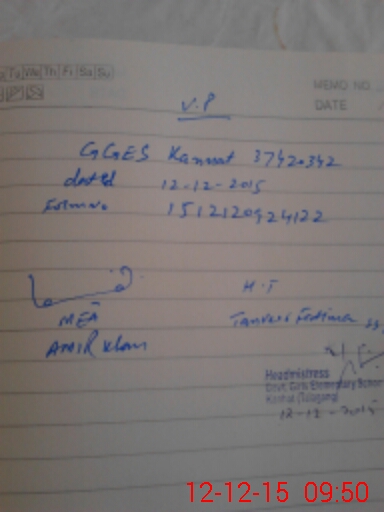 Tu We Th Fi Sa Su
MEMO NO.
DATE
V.P
GGES Kannat 37420342
dated 12-12-2015
Form No. 1512120924122
H.T
MEA Tanveer Fatima
AMIR Khan
Headmistress
Govt. Girls Elementary School
(Talagang)
12-12-2015
12-12-15 09:50